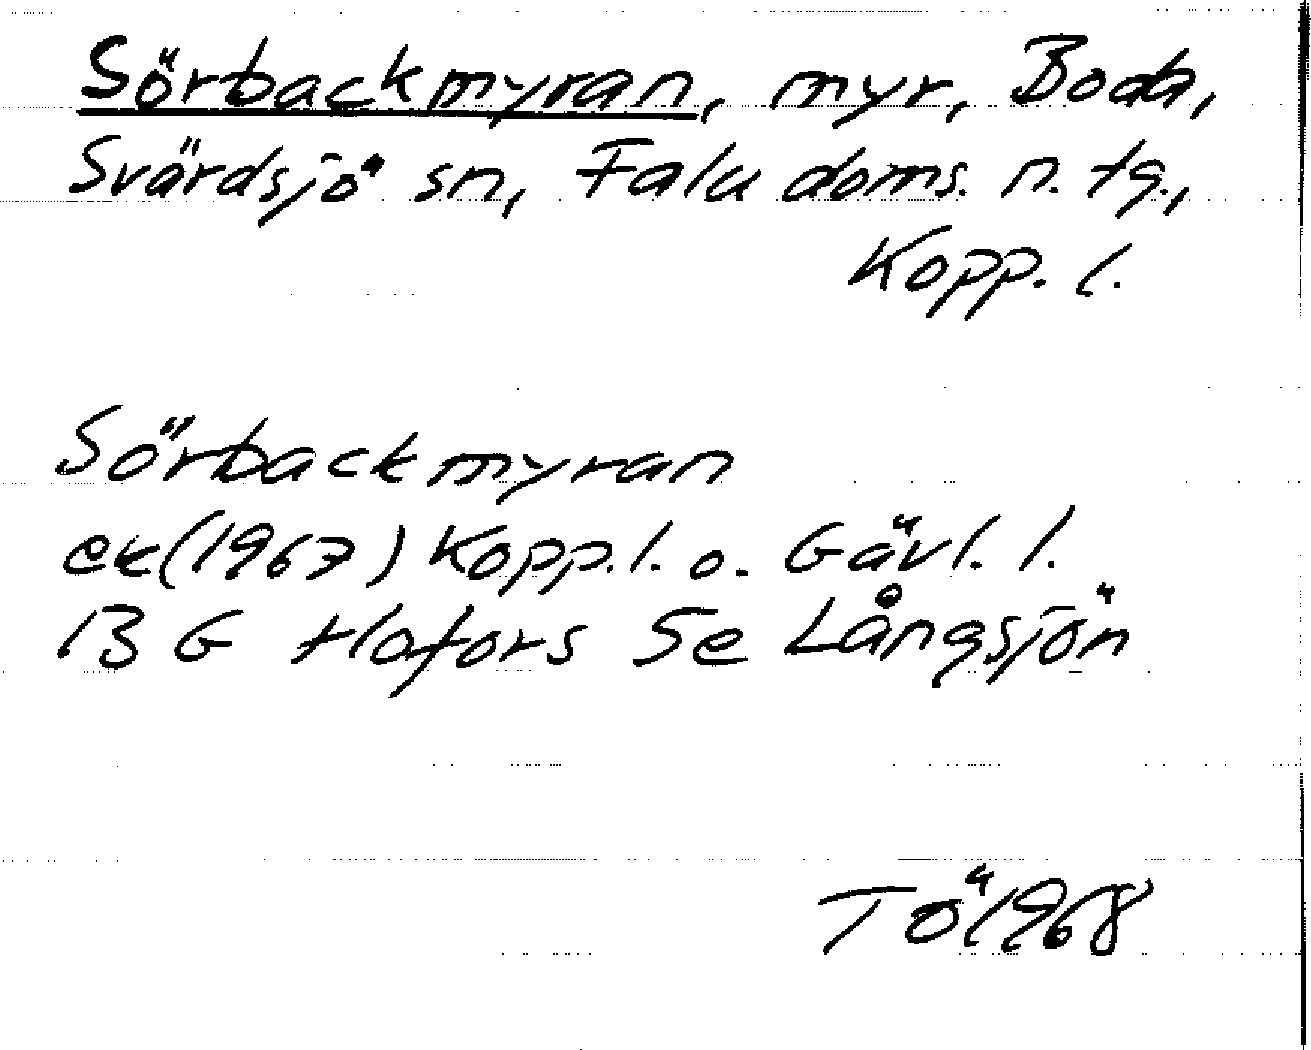 Sörbackmyran, myr, Boda,
Svärdsjö sn, Falu doms. n. tg.,
Kopp. l.
Sörbackmyran
ek(1967) Kopp.l. o. Gävl. l.
13 G Hofors 5e Långsjön
TÖ 1968